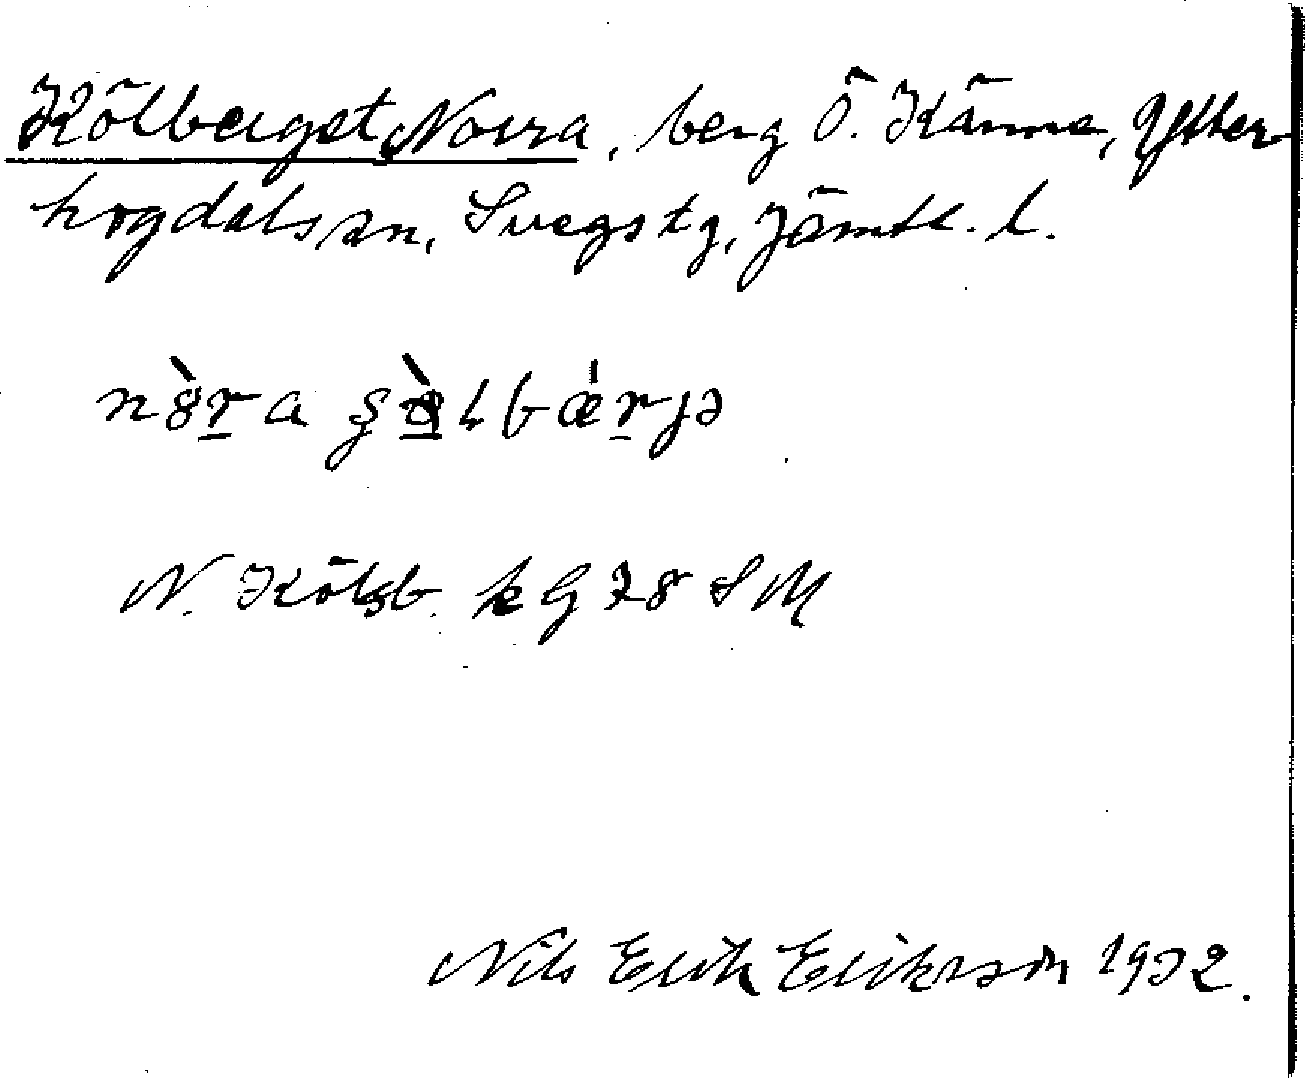 Kölberget, Norra, berg Ö. Känne, Ytter-
hogdals sn, Svegs tg, Jämtl. l.
N. Kölsb. k G 78 SM
Nils Erik Erikson 1932.